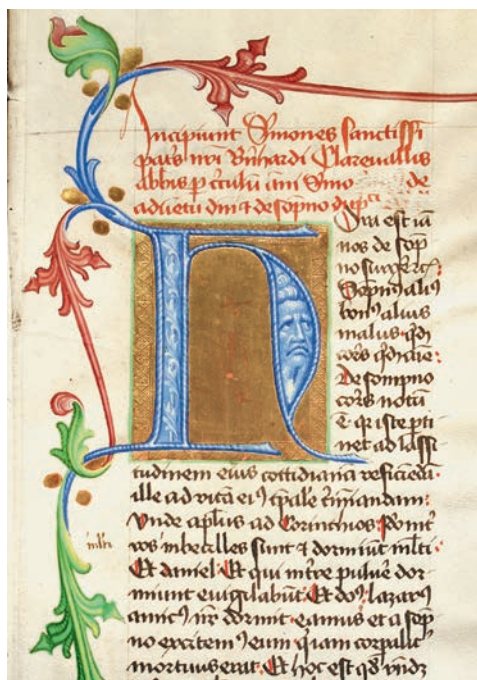 Incipiunt Smones sanctissi
pats nri Bnhardi Clareuallis
abbis p ctulu ani Smo de
aduetu dni & de sopno
Hora est ia
nos de sop
no surgere
Sopnꝰ aliꝰ
bonꝰ aliꝰ
malus qd
cors
De sompno
cors notu
e qr iste pti
net ad lassi
tudinem eius cottidiana reficieda
ille ad vita eiꝰ tpale tmiandam
Vnde aplus ad Corinthios
vos imbecilles sunt & dormiut mlti
Et daniel Et qui in tre puluere dor
miunt euigilabut Et dns lazarꝰ
amicꝰ nr dormit eamus et a sop
no excitemꝰ eum qui iam corpalit
mortuus erat Et hoc est qd
mlti